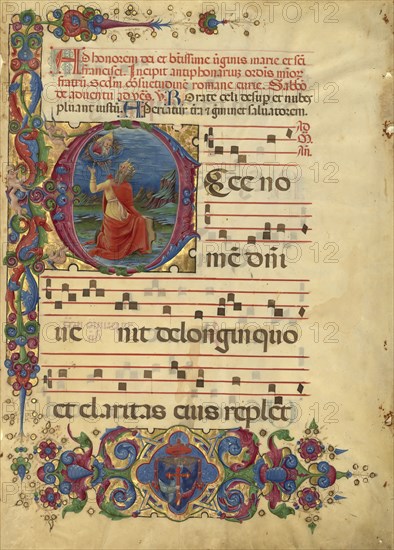 Ad honorem dei et btissime uginis marie et sci
francisci. Incipit antiphonariu ordis mino⁊
fratru. Scdm consuetudine romane curie. Sabbo
de aduentu ad ues. Rorate celi desup et nubes
pluant iustu. Aperiatur tra et giminet saluatorem.
AD
M
An.
Ecce no
me dni
ue nit de longinquo
et claritas eius replet